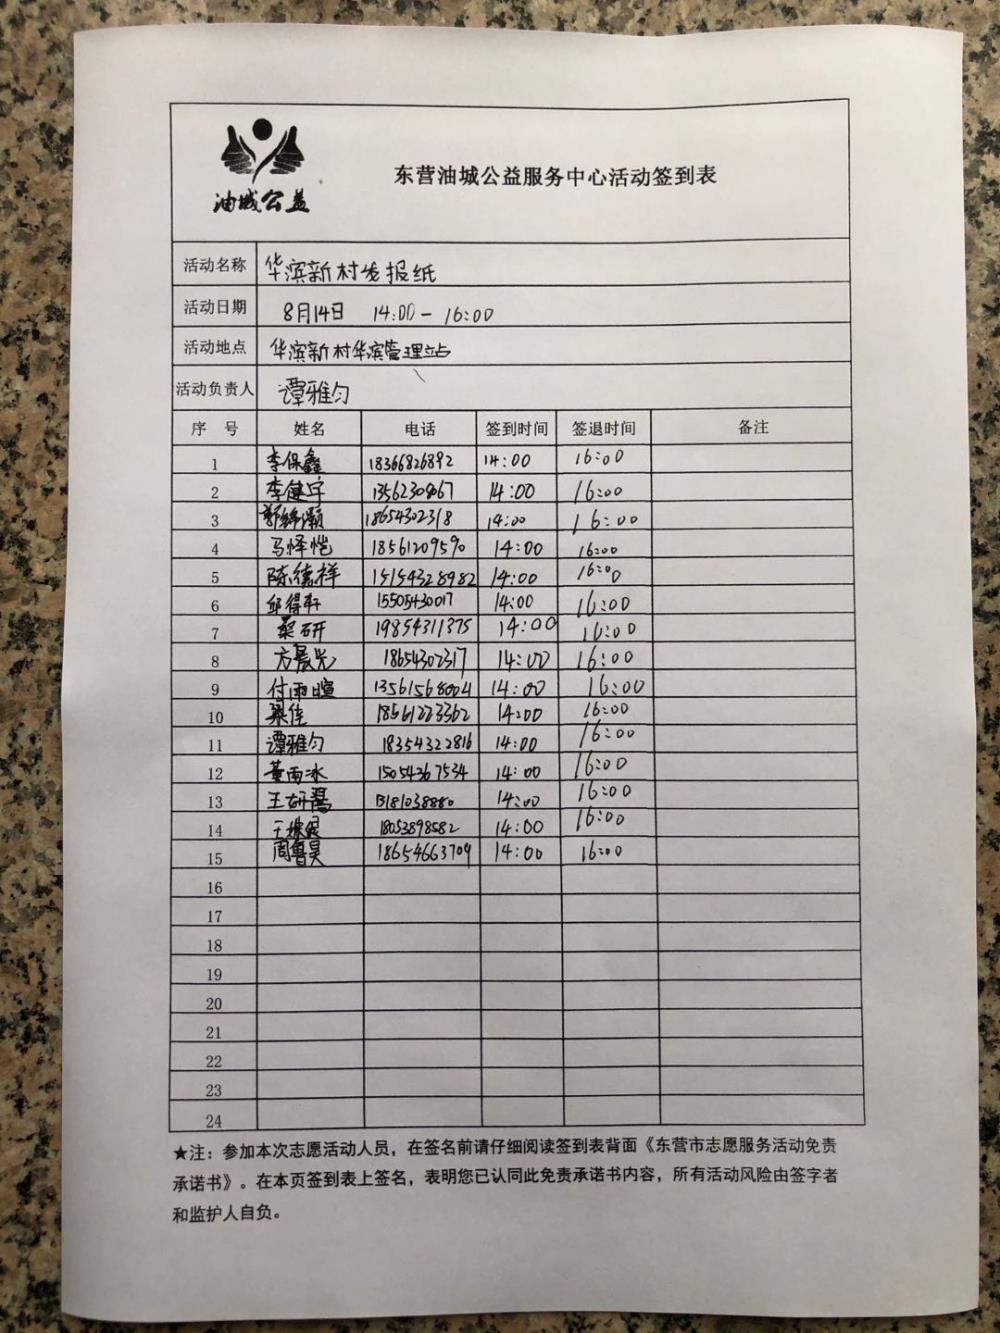 油城公益
东营油城公益服务中心活动签到表
活动名称 华滨新村发报纸
活动日期 8月14日 14:00-16:00
活动地点 华滨新村华滨管理站
活动负责人 谭雅匀
序 号 姓名 电话 签到时间 签退时间 备注
1 李保鑫 18366826892 14:00 16:00
2 李健宇 14:00 16:00
3 18654302318 14:00 16:00
4 马怿恺 18561209590 14:00 16:00
5 陈德祥 15154328982 14:00 16:00
6 邱得轩 15505430017 14:00 16:00
7 桑研 19854311375 14:00 16:00
8 方晨光 18654302317 14:00 16:00
9 付雨暄 13561568004 14:00 16:00
10 梁佳 18561223362 14:00 16:00
11 谭雅匀 18354322816 14:00 16:00
12 董雨冰 15054367534 14:00 16:00
13 13181038880 14:00 16:00
14 18053898582 14:00 16:00
15 周鲁昊 18654663709 14:00 16:00
16
17
18
19
20
21
22
23
24
★注：参加本次志愿活动人员，在签名前请仔细阅读签到表背面《东营市志愿服务活动免责
承诺书》。在本页签到表上签名，表明您已认同此免责承诺书内容，所有活动风险由签字者
和监护人自负。